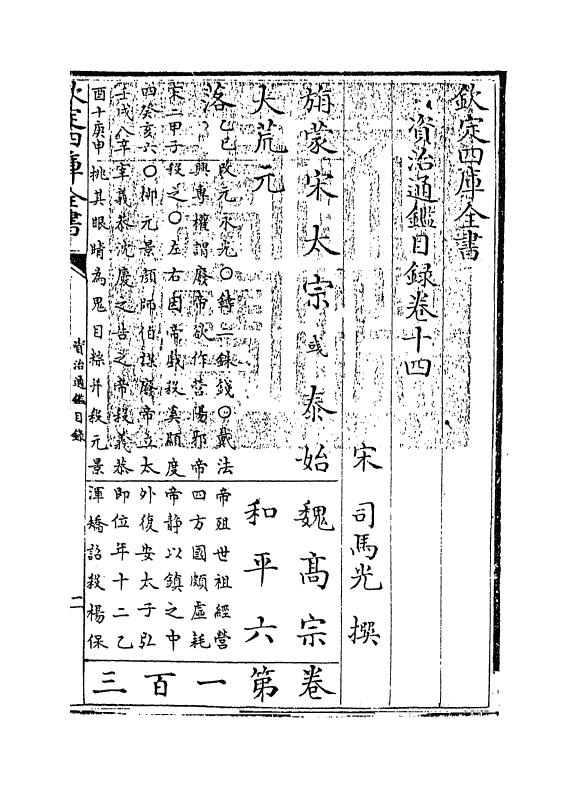 欽定四庫全書
資治通鑑目録卷十四
宋 司馬光 撰
旃蒙宋太宗或泰始魏髙宗卷
大荒元
和平六
第一百三
落
乙巳改元永光〇鑄二銖錢〇戴法
興專權謂廢帝欲作營陽邪帝
宋二甲子殺之〇左右因帝戲殺奚顯度
四癸亥六〇栁元景顔師伯謀廢帝立太
壬戌八辛宰義恭沈慶之告之帝殺義恭
酉十庚申挑其眼睛為鬼目粽并殺元景
帝殂世祖經營
四方國頗虛耗
帝静以鎮之中
外復安太子弘
即位年十二乙
渾矯詔殺楊保
欽定四庫全書
資治通鑑目録
二